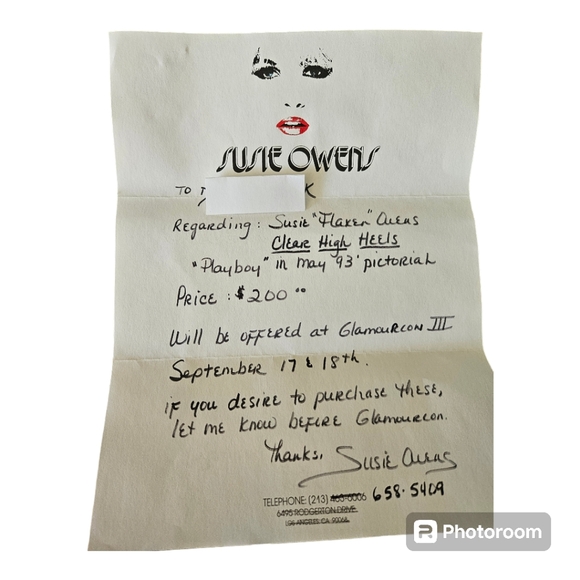 SUSIE OWENS
TO
Regarding: Susie "Flaxen" Owens
Clear High Heels
"Playboy" in may '93' pictorial
Price: $200 ⁰⁰
Will be offered at Glamourcon III
September 17 & 18th.
if you desire to purchase these,
let me know before Glamourcon.
Thanks, Susie Owens
TELEPHONE: (213) 463-6006 658-5409
6495 RODGERTON DRIVE
LOS ANGELES, CA. 90068
Photoroom